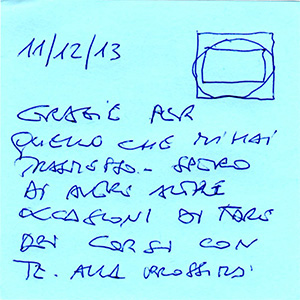 11/12/13
GRAZIE PER
QUELLO CHE MI HAI
TRASMESSO - SPERO
DI AVERE ALTRE
OCCASIONI DI FARE
DEI CORSI CON
TE. ALLA PROSSIMA